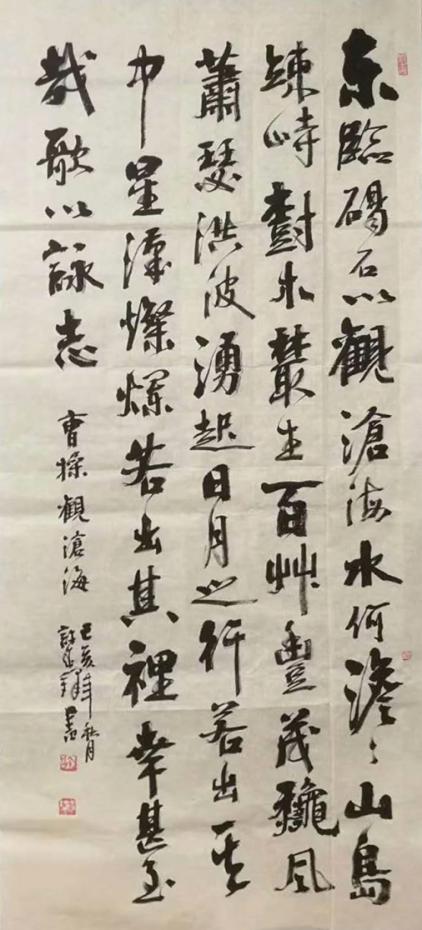 东臨碣石以觀滄海水何澹〻山島
竦峙樹木叢生百艸豐茂龝風
蕭瑟洪波湧起日月之行若出其
中星漢燦爛若出其裡幸甚至
哉歌以詠志
曹操觀滄海
己亥年秋月
書